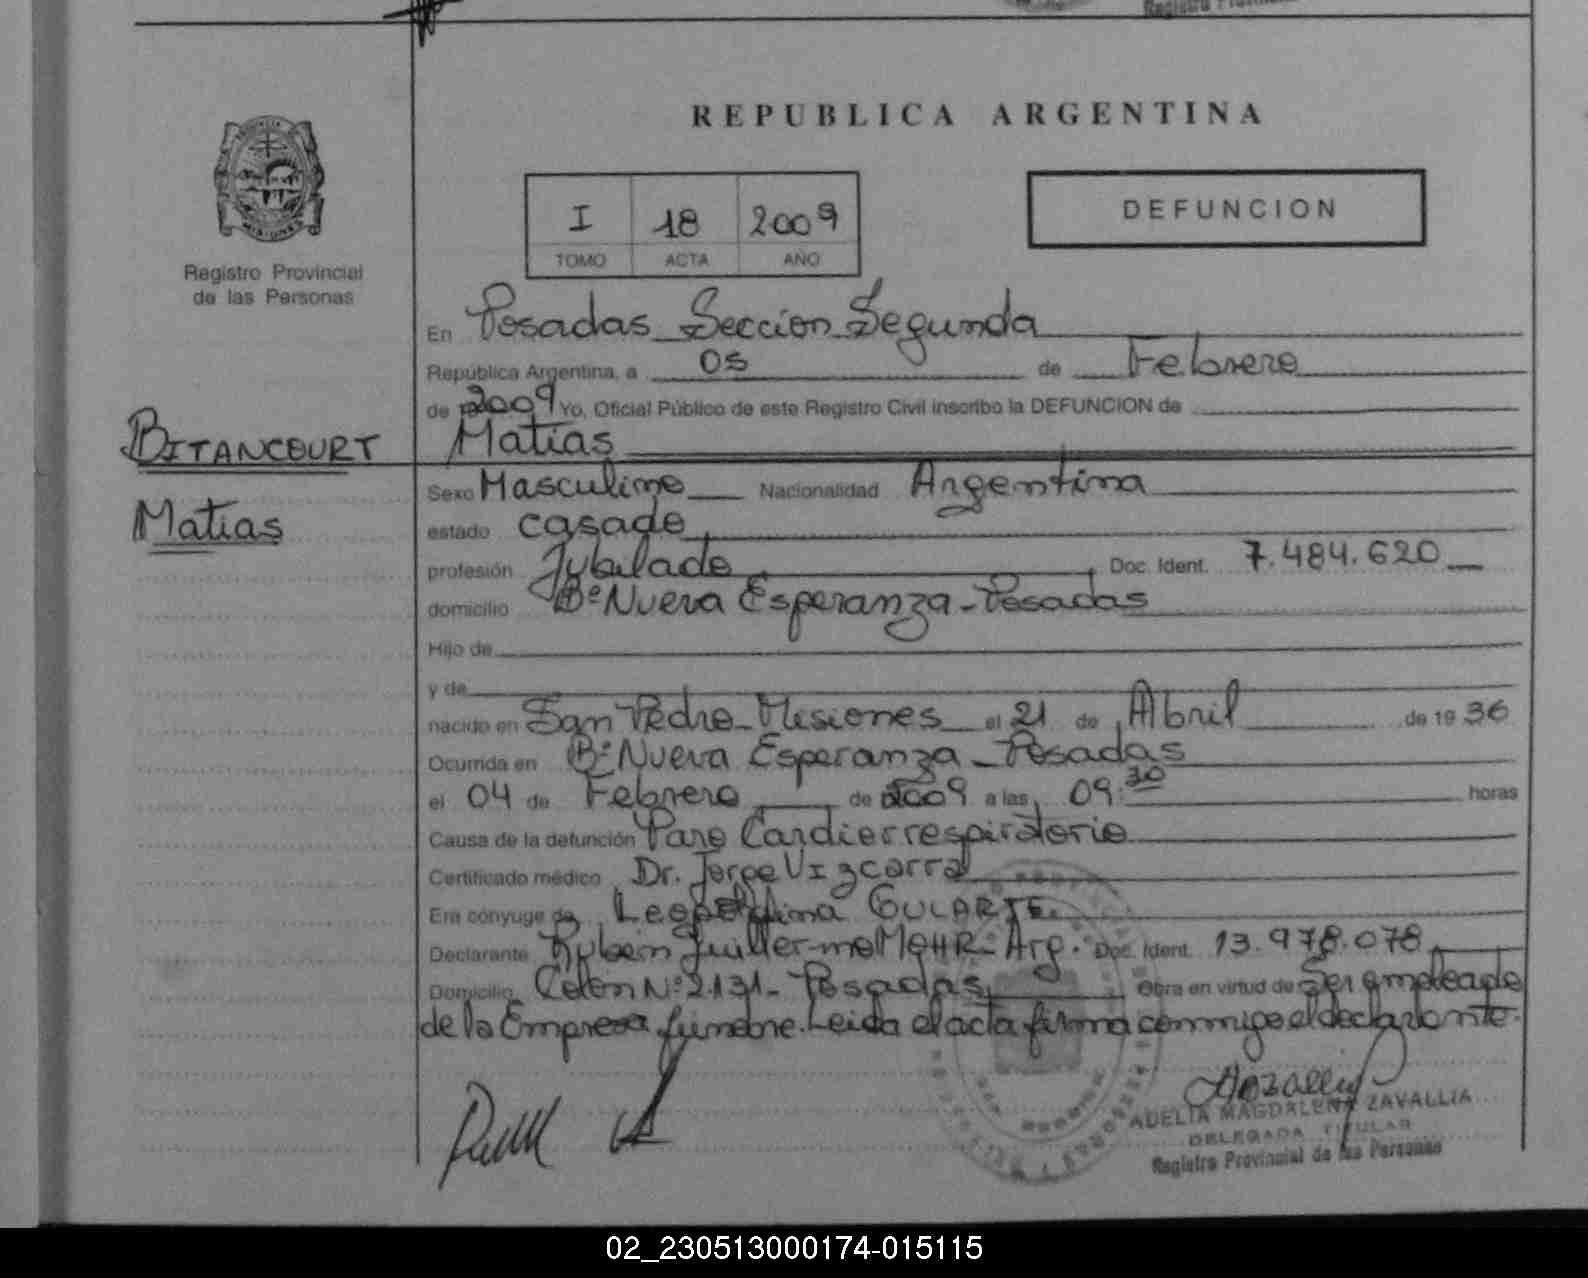 Registro Provincial
REPUBLICA ARGENTINA
PROVINCIA
MISIONES
Registro Provincial
de las Personas
I 18 2009
TOMO ACTA AÑO
DEFUNCION
En Posadas Seccion Segunda
República Argentina, a 05 de Febrero
de 2009 Yo, Oficial Público de este Registro Civil inscribo la DEFUNCION de
BITANCOURT Matias
Sexo Masculino Nacionalidad Argentina
Matias
estado casado
profesión Jubilado Doc. Ident. 7.484.620
domicilio Bº Nueva Esperanza - Posadas
Hijo de
y de
nacido en San Pedro - Misiones el 21 de Abril de 1936
Ocurrida en Bº Nueva Esperanza - Posadas
el 04 de Febrero de 2009 a las 09:30 horas
Causa de la defunción Paro Cardiorrespiratorio
Certificado médico Dr. Jorge Vizcarra
Era cónyuge de Leopoldina GULARTE.
Declarante Ruben Guillermo MOHR - Arg. Doc. Ident. 13.978.078
Domicilio Colon Nº 2131 - Posadas Obra en virtud de Ser empleado
de la Empresa fúnebre. Leida el acta firma conmigo el declarante.
ADELIA MAGDALENA ZAVALLIA
DELEGADA TITULAR
Registro Provincial de las Personas
02_230513000174-015115